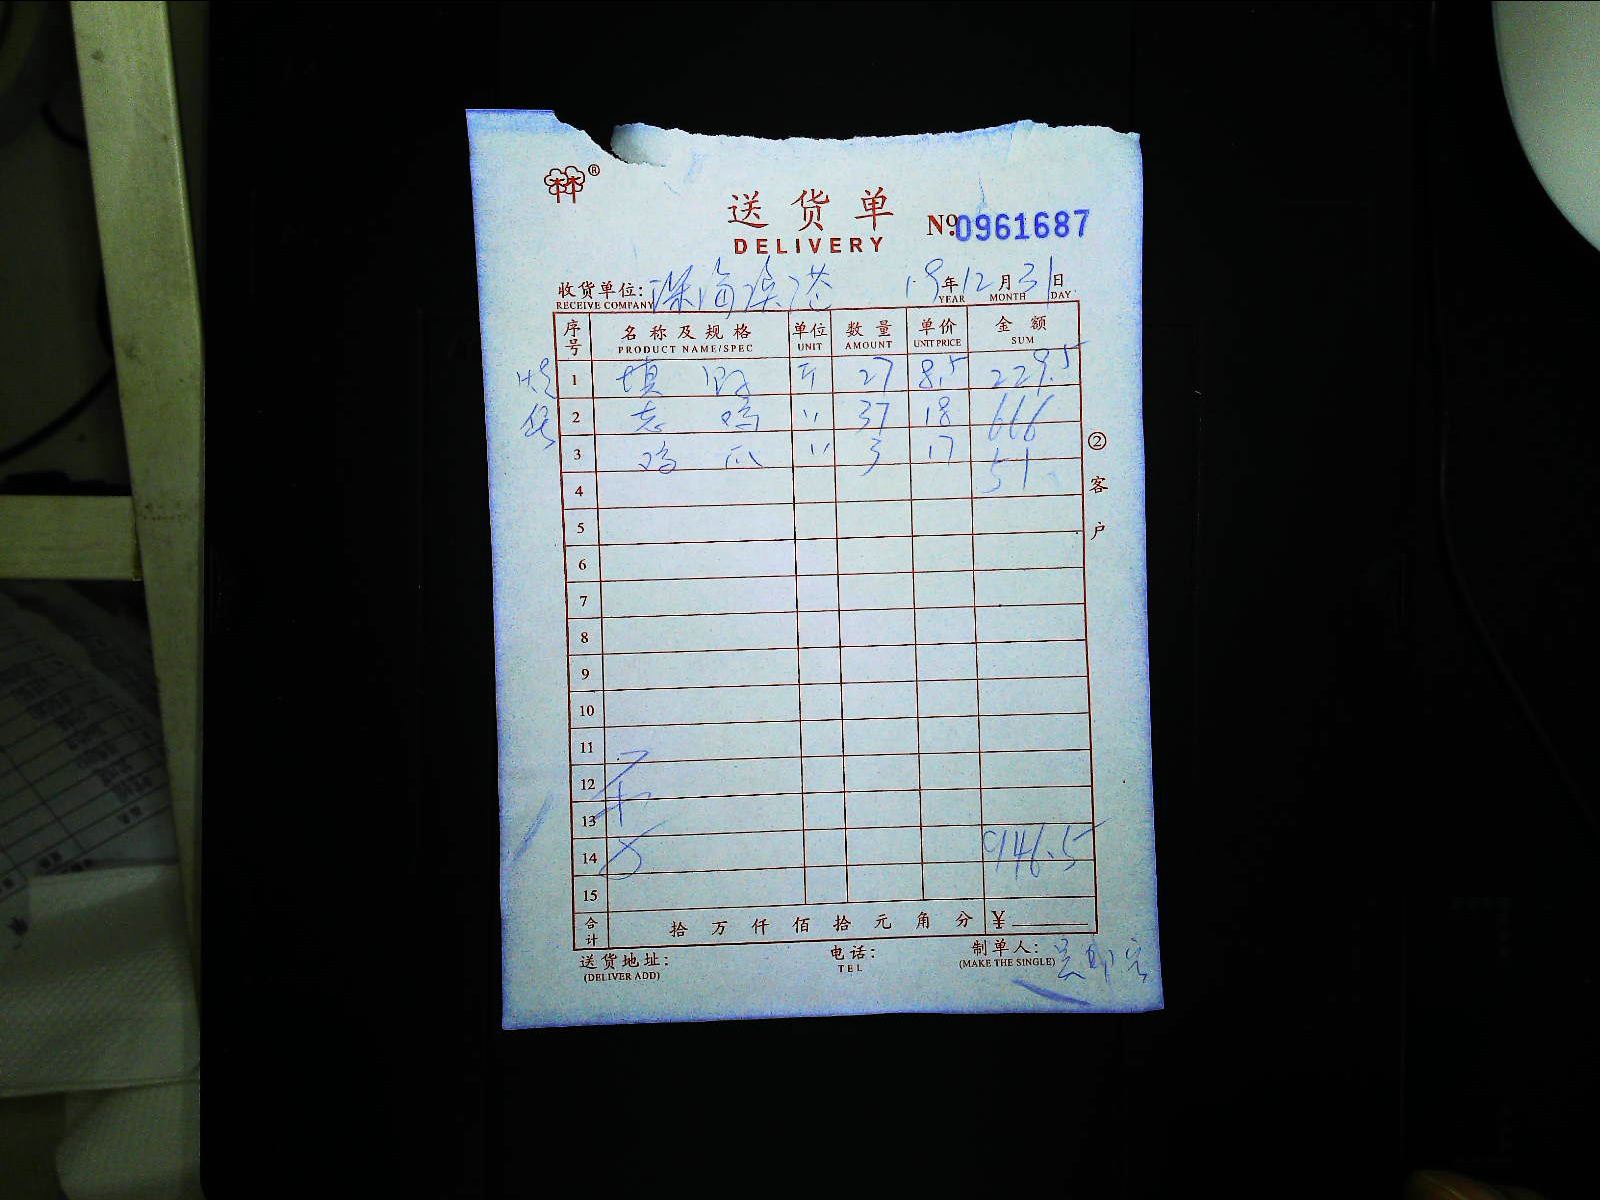 ®
送货单
DELIVERY
№ 0961687
收货单位: 深海渔港 19年12月31日
RECEIVE COMPANY YEAR MONTH DAY
序号 名称及规格 单位 数量 单价 金额
PRODUCT NAME/SPEC UNIT AMOUNT UNIT PRICE SUM
1 填鸭 斤 27 8.5 229.5
2 老鸡 〃 37 18 666
3 鸡爪 〃 3 17 51
4
5
6
7
8
9
10
11
12
13
14 946.5
15
合计 拾万仟佰拾元角分 ¥
送货地址: 电话: 制单人:
(DELIVER ADD) TEL (MAKE THE SINGLE)
②客户